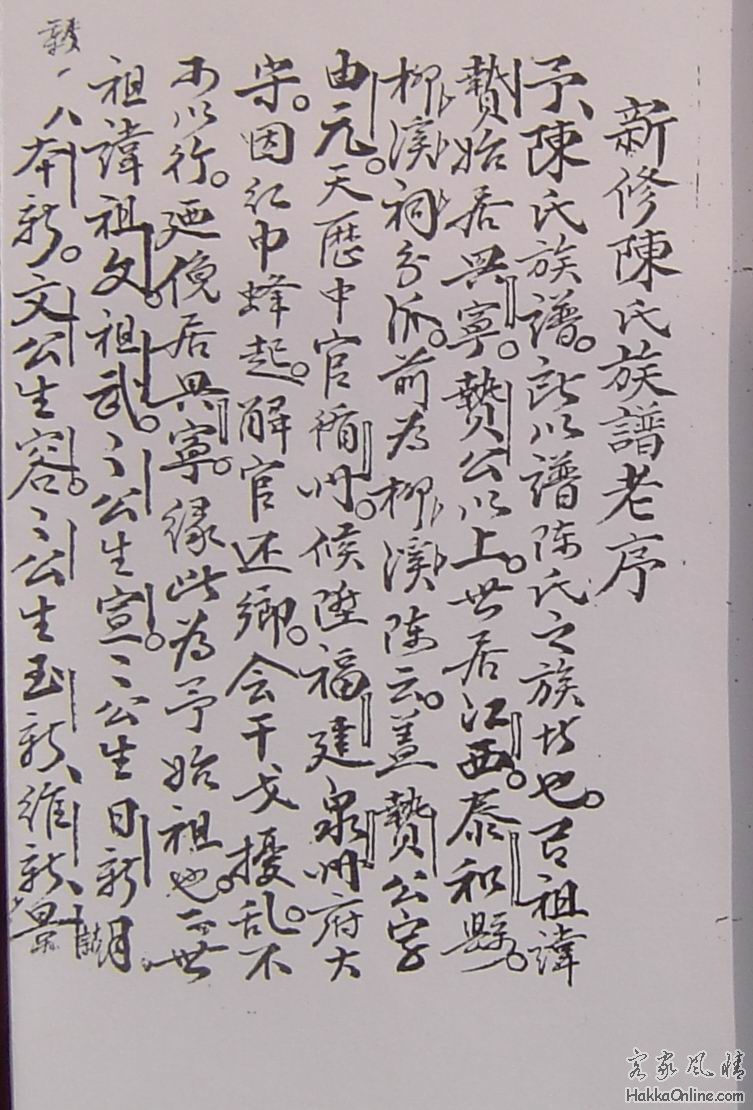 新修陳氏族譜老序
予陳氏族譜。所以譜陈氏之族世也。吾祖諱
贄始居興寧。贄公以上。世居江西。泰和縣。
柳溪祠分派。前为柳溪陈云。盖贄公字
由元。天歷中官循州。候陞福建泉州府太
守。因红巾蜂起。解官还鄉。会干戈擾乱。不
可以行。廼俛居興寧。緣此為予始祖也。二世
祖諱祖文。祖武。〻公生宣。〻公生日新明
新。文公生容。〻公生玉新、維新、景
客家風情
HakkaOnline.com